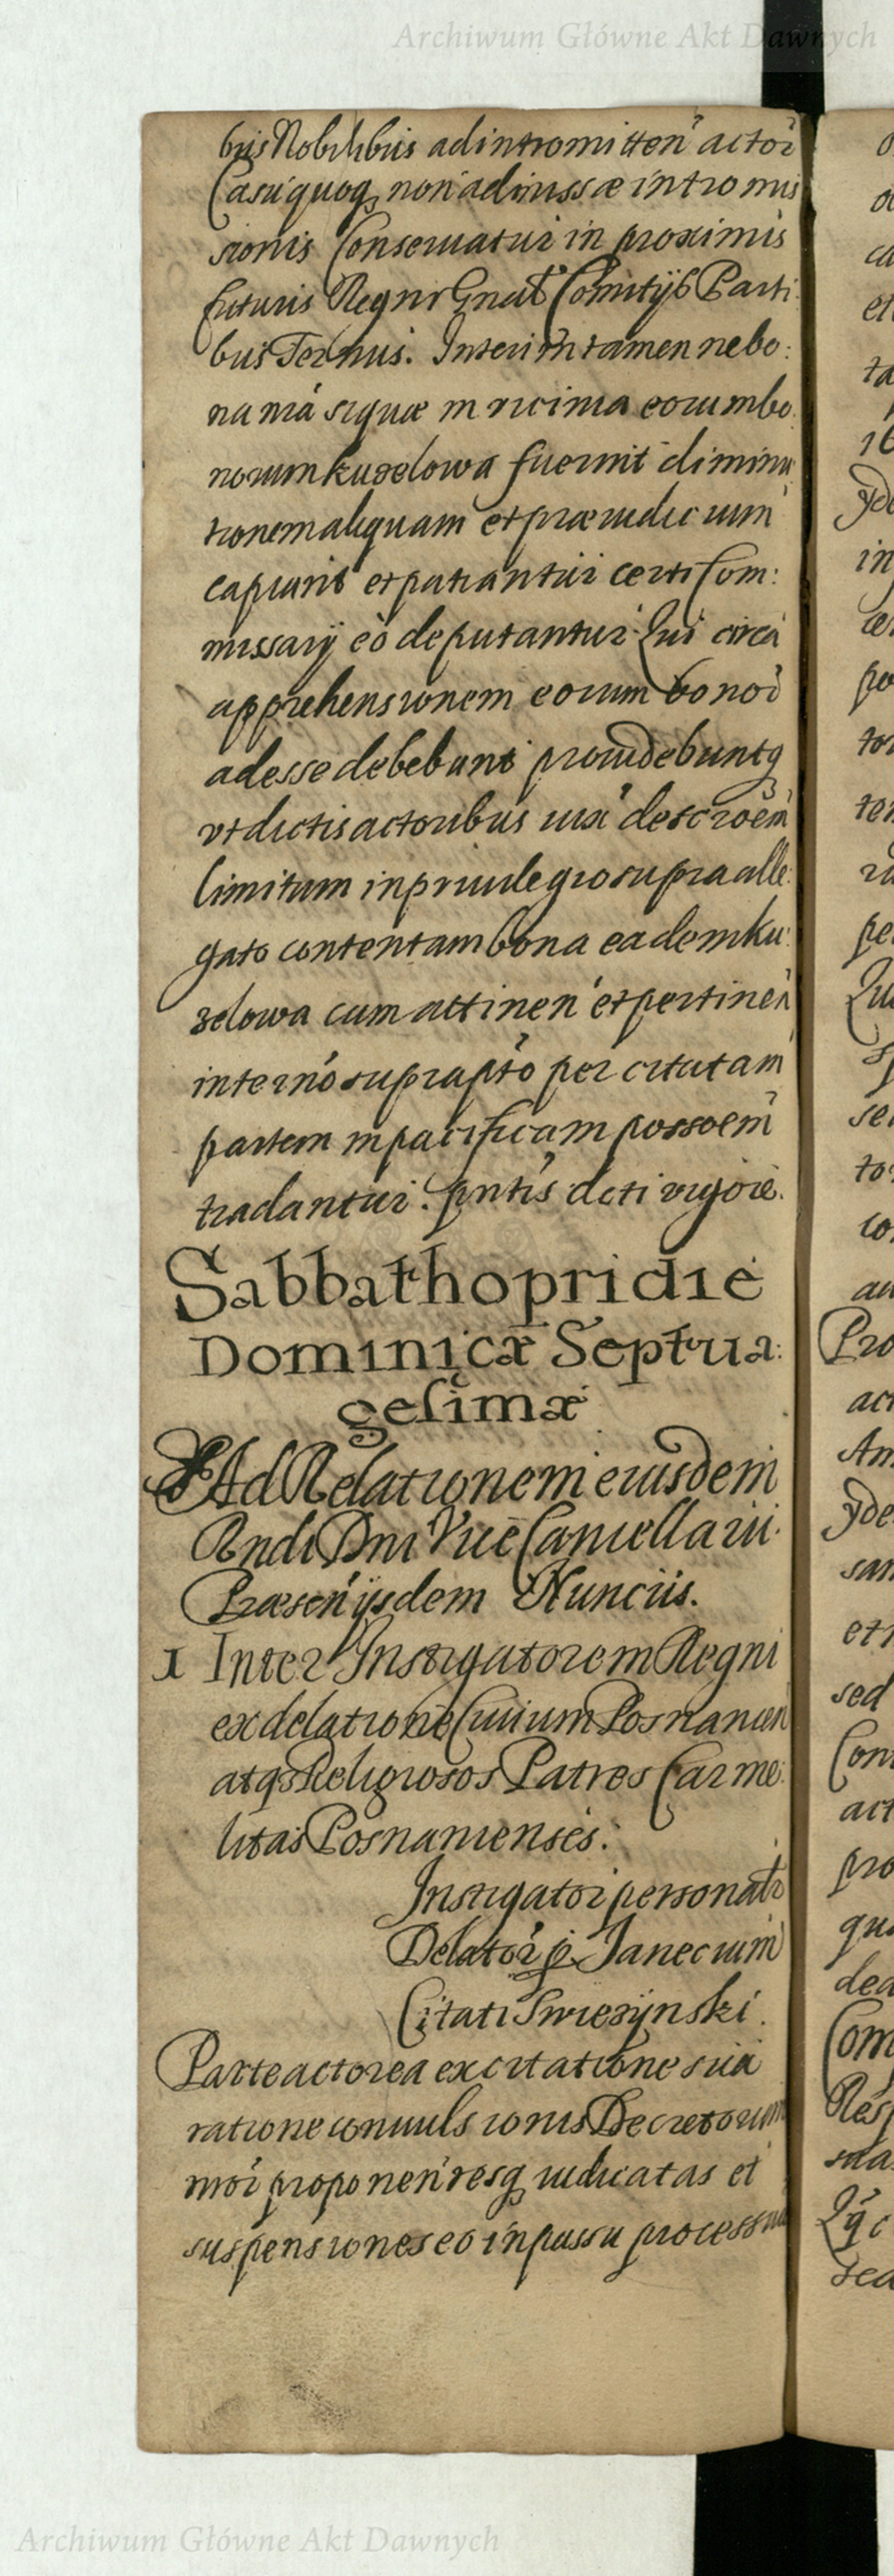 Archiwum Główne Akt Dawnych
bus Nobilibus ad intromitten actor
Casu quoq non admissæ intromis
sionis Conseruatur in proximis
futuris Regni Gnal Comitijs Parti
bus Terminus. Interim tamen ne bo:
na nra siquæ in vicinia eorum bo
norum kuzelowa fuerint diminu
tionem aliquam et præiudicium
capiant et patiantur certi Com:
missarij eo deputantur Qui circa
apprehensionem eorum bonor
adesse debebunt prouidebuntq
vt dictis actoribus iuxa descroem
limitum in priuilegio supra alle:
gato contentam bona eadem ku:
zelowa cum attinen et pertinen
in termo suprapto per citatam
partem in pacificam possoem
tradantur. pntis dcti vigore.
Sabbatho pridie
Dominicæ Septua:
gesimæ
Ad Relationem eiusdem
Rndi Dni Vice Cancellarii.
Præsen ijsdem Nunciis.
1 Inter Instigatorem Regni
ex delatione Ciuium Posnanien
atqs Religiosos Patres Carme:
litas Posnanienses.
Instigator personalr
Delator p Janecium
Citati Swiezynski.
Parte actorea ex citatione sua
ratione conuulsionis Decretorum
mor proponen resq iudicatas et
suspensiones eo in passu processuu
Archiwum Główne Akt Dawnych